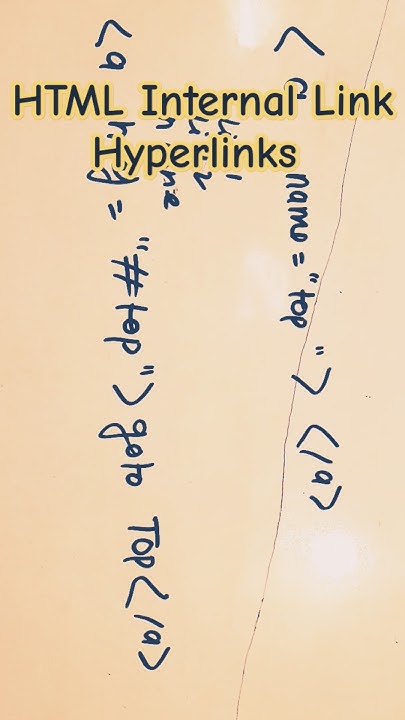 HTML Internal Link
Hyperlinks
< name="top"></a>
<a = "#top">goto Top</a>